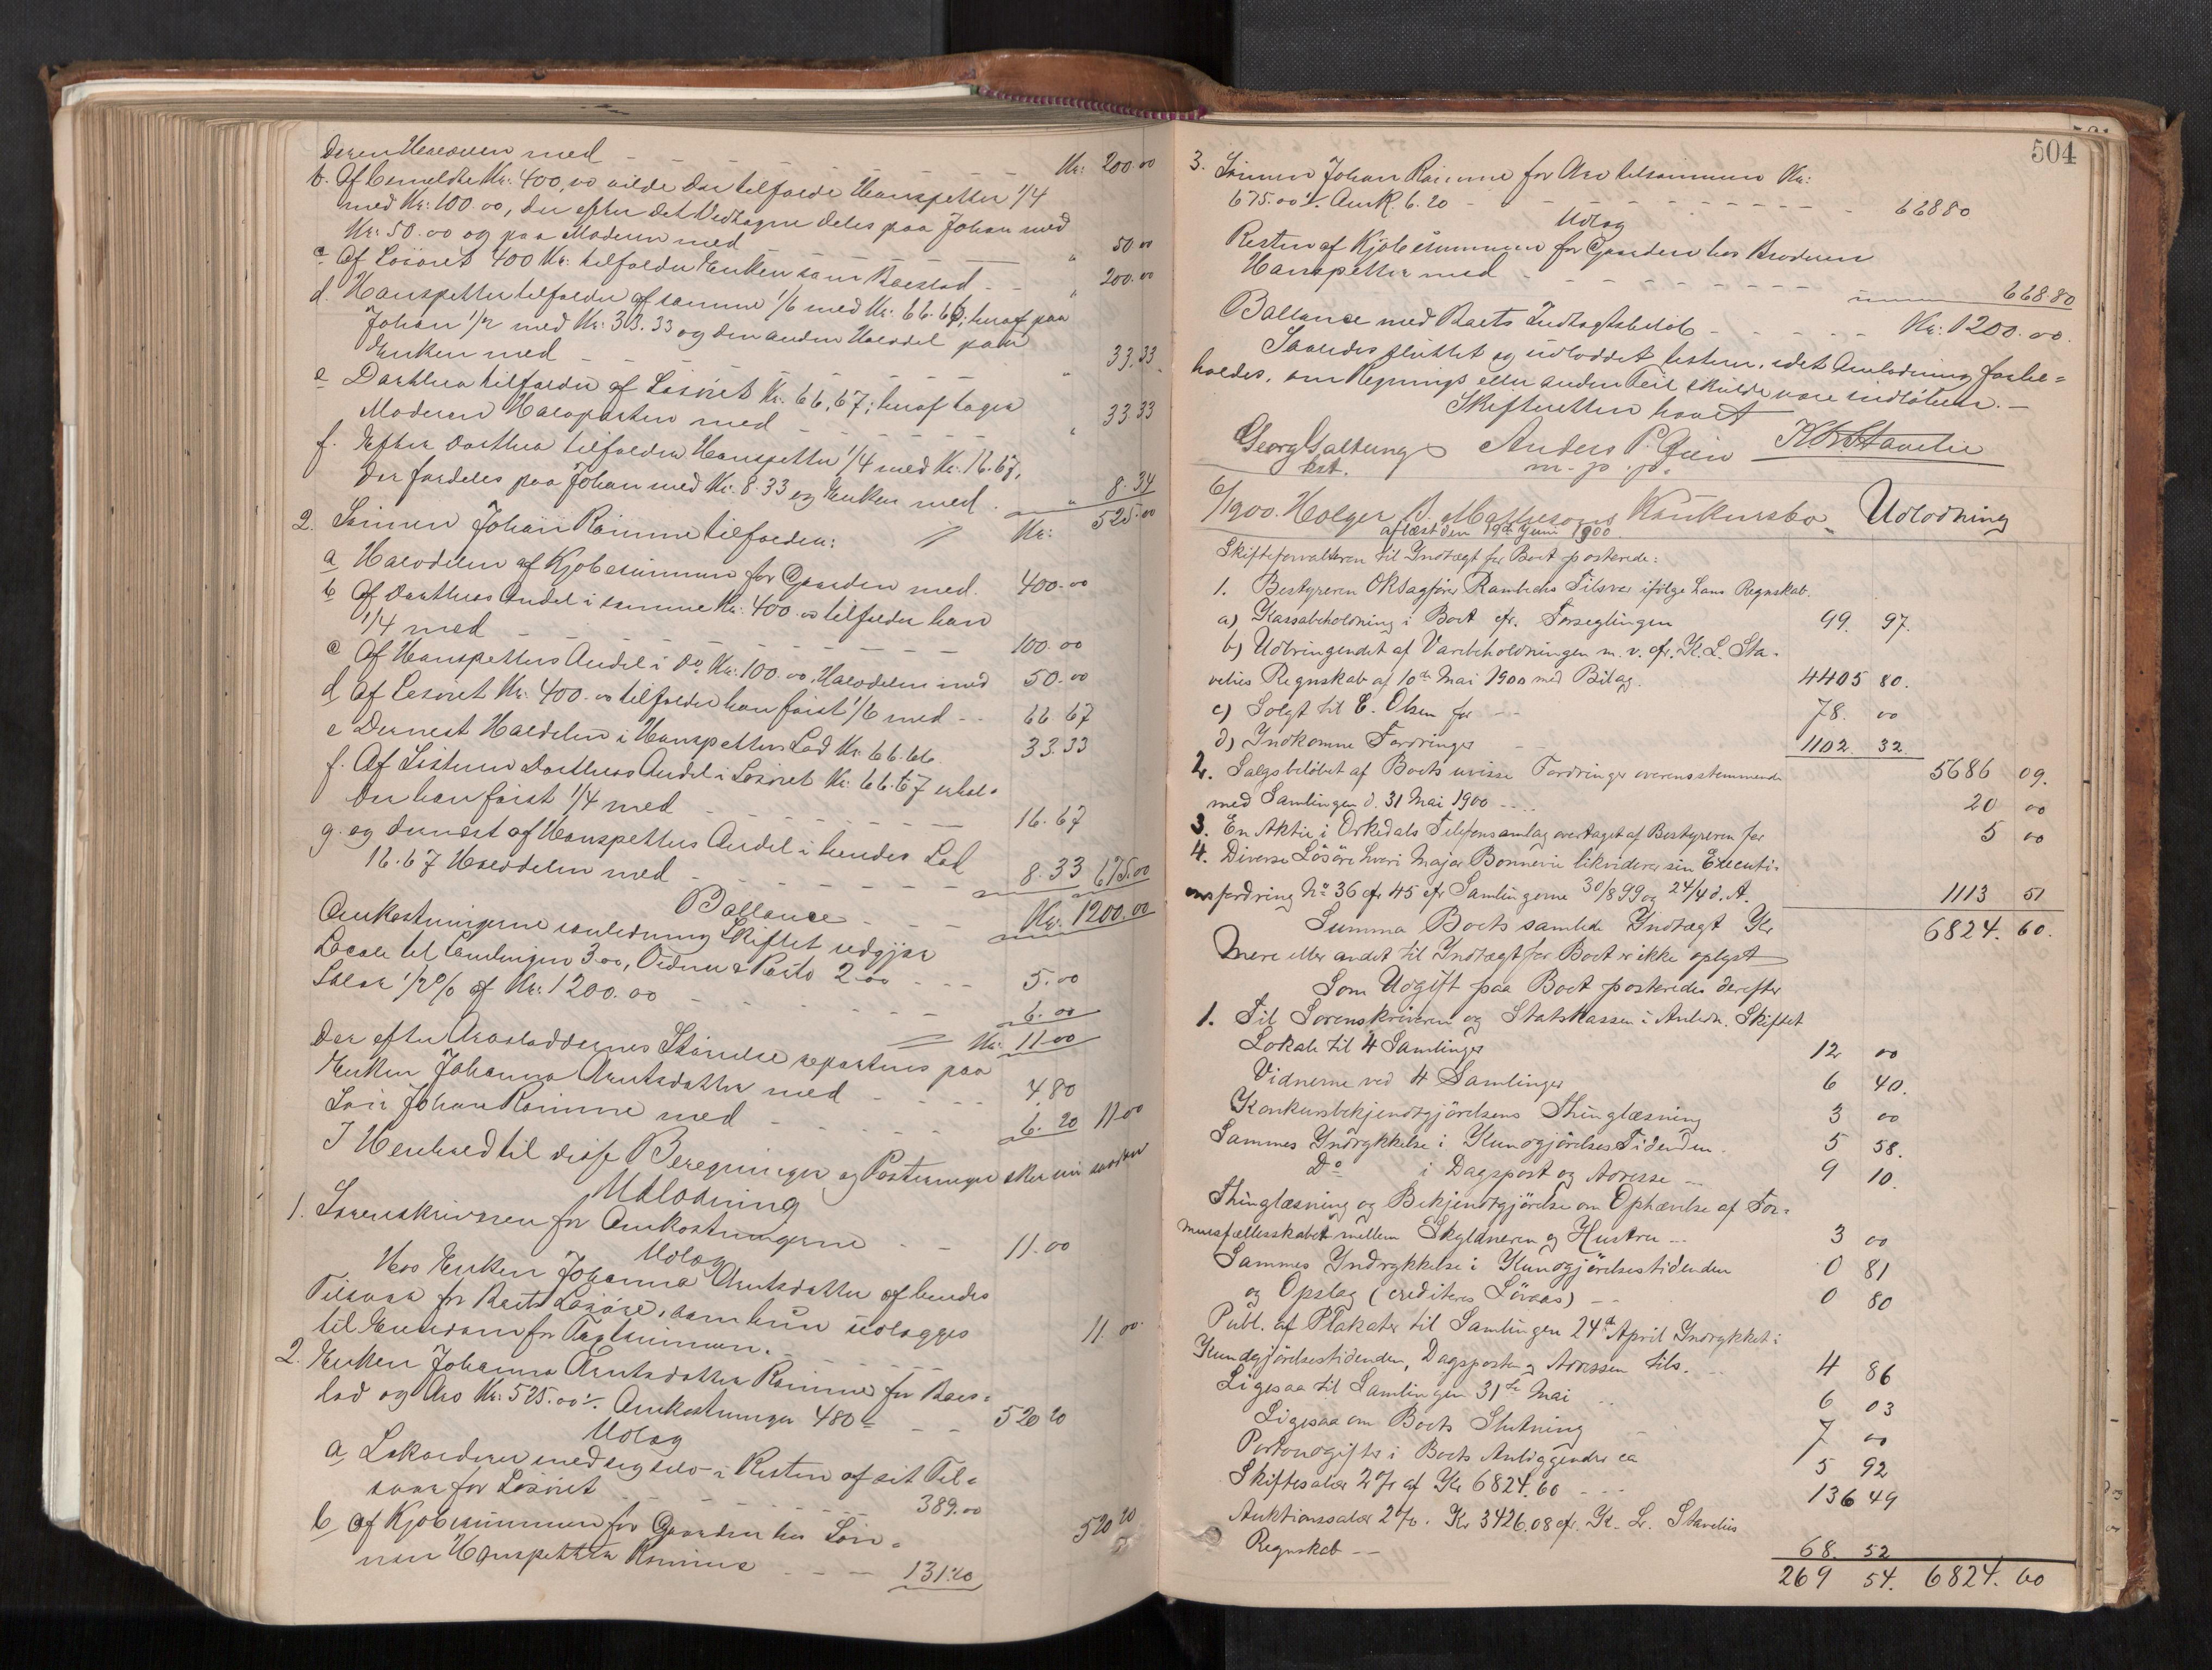 deren Halvdelen med - - - - - Kr: 200.00
b. Af bemeldte Kr. 400,00 vilde der tilfalde Hanspetter 1/4
med Kr: 100.00, der efter det Vedtagne deles paa Johan med
Kr: 50.00 og paa Moderen med - - " 50 00
c Af Løsøret 400 Kr: tilfalder Enken som Boeslod - - " 200.00
d. Hanspetter tilfalder af samme 1/6 med Kr: 66.66; heraf paa
Johan 1/2 med Kr: 33.33 og den anden Halvdel paa
Enken med - - - - - " 33.33
e Dorthea tilfalder af Løsøret Kr. 66.67; heraf tager
Moderen Halvparten med - - - - " 33 33
f. Efter Dorthea tilfalder Hanspetter 1/4 med Kr. 16.67,
der fordeles paa Johan med Kr. 8.33 og Enken med . " 8.34
Kr: 525.00
2. Sønnen Johan Rømme tilfalder:
a Halvdelen af Kjøbesummen for Gaarden med. 400.00
b Af Dortheas Andel i samme Kr. 400.00 tilfalder han
1/4 med - - - - - - - 100.00
c Af Hanspetters Andel i Do Kr: 100.00, Halvdelen med 50.00
d Af Løsøret Kr. 400.00 tilfalder han først 1/6 med - - 66.67
e Dernest Halvdelen i Hanspetters Lod Kr. 66.66. 33.33
f. Af Søsteren Dortheas Andel i Løsøret Kr. 66.67 erhol-
der han først 1/4 med - - - - - - - 16.67
g. og dernæst af Hanspetters Andel i hendes Lod
16.67 Halvdelen med - - - - - - - 8.33 675.00
Ballance - - - Kr. 1200.00
Omkostningerne i anledning Skiftet udgjør
Locale til Samlingen 3.00, Vidner & Porto 2.00 - - - 5.00
Salær 1/2% af Kr: 1200.00 - - - - - 6.00
Kr. 11.00
der efter Arveloddernes Størrelse repartere paa
Enken Johanna Arntsdatter med - - - - 4.80
Søn Johan Rømme med - - - - - 6.20 11.00
I Henhold til disse Beregninger og Posteringer sker nu saadan
Udlodning
1. Sorenskriveren for Omkostningerne - - 11.00
Udlæg
Hos Enken Johanna Arntsdatter af hendes
Tilsvar for Boets Løsøre, som hun udlægges
til Eiendom for Taxtsummen. - - - - - 11.00
2. Enken Johanna Arntsdatter Rømme for Boes-
lod og Arv Kr: 525.00 ÷ Omkostninger 480 = - - 520 20
Udlæg
a, Lokaederer med sig selv i Resten af sit Til-
svar for Løsøret - - - - - - 389.00
b, af Kjøbesummen for Gaarden hos Søn-
nen Hanspetter Rømme - - - 131.20 520 20
504
3. Sønnen Johan Rømme for Arv tilsammen Kr:
675.00 ÷ Omk. 6.20 - - - - - - - 668 80
Udlæg
Resten af Kjøbesummen for Gaarden hos Broderen
Hanspetter med - - - - - - - 668.80
Ballance med Boets Indtægtsbeløb - - - - - Kr: 1200.00.
Saaledes sluttet og udloddet bestem, idet Anledning forbe-
holdes, om Regnings eller anden Feil skulde være indløben. -
Skifteretten hævet
Georg Galtung
kst.
Anders P. Gjein
m. p. p.
K L Stavelie
6/1900. Holger B. Mathesons Konkursbo - Udlodning
aflæst den 19de Juni 1900.
Skifteforvalteren til Indtægt for Boet posterede:
1. Bestyreren ORSagfører Rambechs Tilsvar ifølge hans Regnskab.
a) Kassabeholdning i Boet efr. Forseglingen 99. 97.
b) Udbringendet af Varebeholdningen m. v. cfr. K. L. Sta-
velies Regnskab af 10de Mai 1900 med Bilag. 4405 80.
c) Solgt til E. Olsen for - - 78. 00
d) Indkomne Fordringer - - 1102. 32. 5686 09.
2. Salgsbeløbet af Boets uvisse Fordringer overensstemmende
med Samlingen d. 31 Mai 1900 - - - 20 00
3. En Aktie i Orkedals Telefonsamlag overtaget af Bestyreren for 5 00
4. Diverse Løsøre hvori Major Bonnevie likviderer sin Executi-
onsfordring No 36 cfr 45 cfr Samlingerne 30/8 99 og 24/4 d. A. 1113 51
Summa Boets samlede Indtægt Kr 6824. 60.
Mere eller andet til Indtægt for Boet er ikke oplyst
Som Udgift paa Boet posteredes derefter
1. Til Sorenskriveren og Statskassen i Anledn. Skiftet
Lokale til 4 Samlinger 12 00
Vidnerne ved 4 Samlinger 6 40.
Konkursbekjendtgjørelsens Thinglæsning 3 00
Sammes Indrykkelse i KundgjørelsesTidenden. 5 58.
Do i Dagspost og Adresse - - 9 10.
Thinglæsning og Bekjendtgjørelse om Ophævelse af For-
muesfællesskabet mellem Skyldneren og Hustru - - 3 00
Sammes Indrykkelse i Kundgjørelsestidenden 0 81
og Opslag (crediteres Løvaas) - - 0 80
Publ. af Plakater til Samlingen 24de April Indrykket i
Kundgjørelsestidenden, Dagsposten og Adressen tils. - - 4 86
Ligesaa til Samlingen 31te Mai - - 6 03
Ligesaa om Boets Slutning - - 7 00
Portoudgifter i Boets Anliggender ca 5 92
Skiftesalær 2% af Kr 6824.60 - - - 136 49
Auktionssalær 2%. Kr 3426.08 cfr. K. L. Stavelies
Regnskab - - 68. 52
269 54. 6824. 60